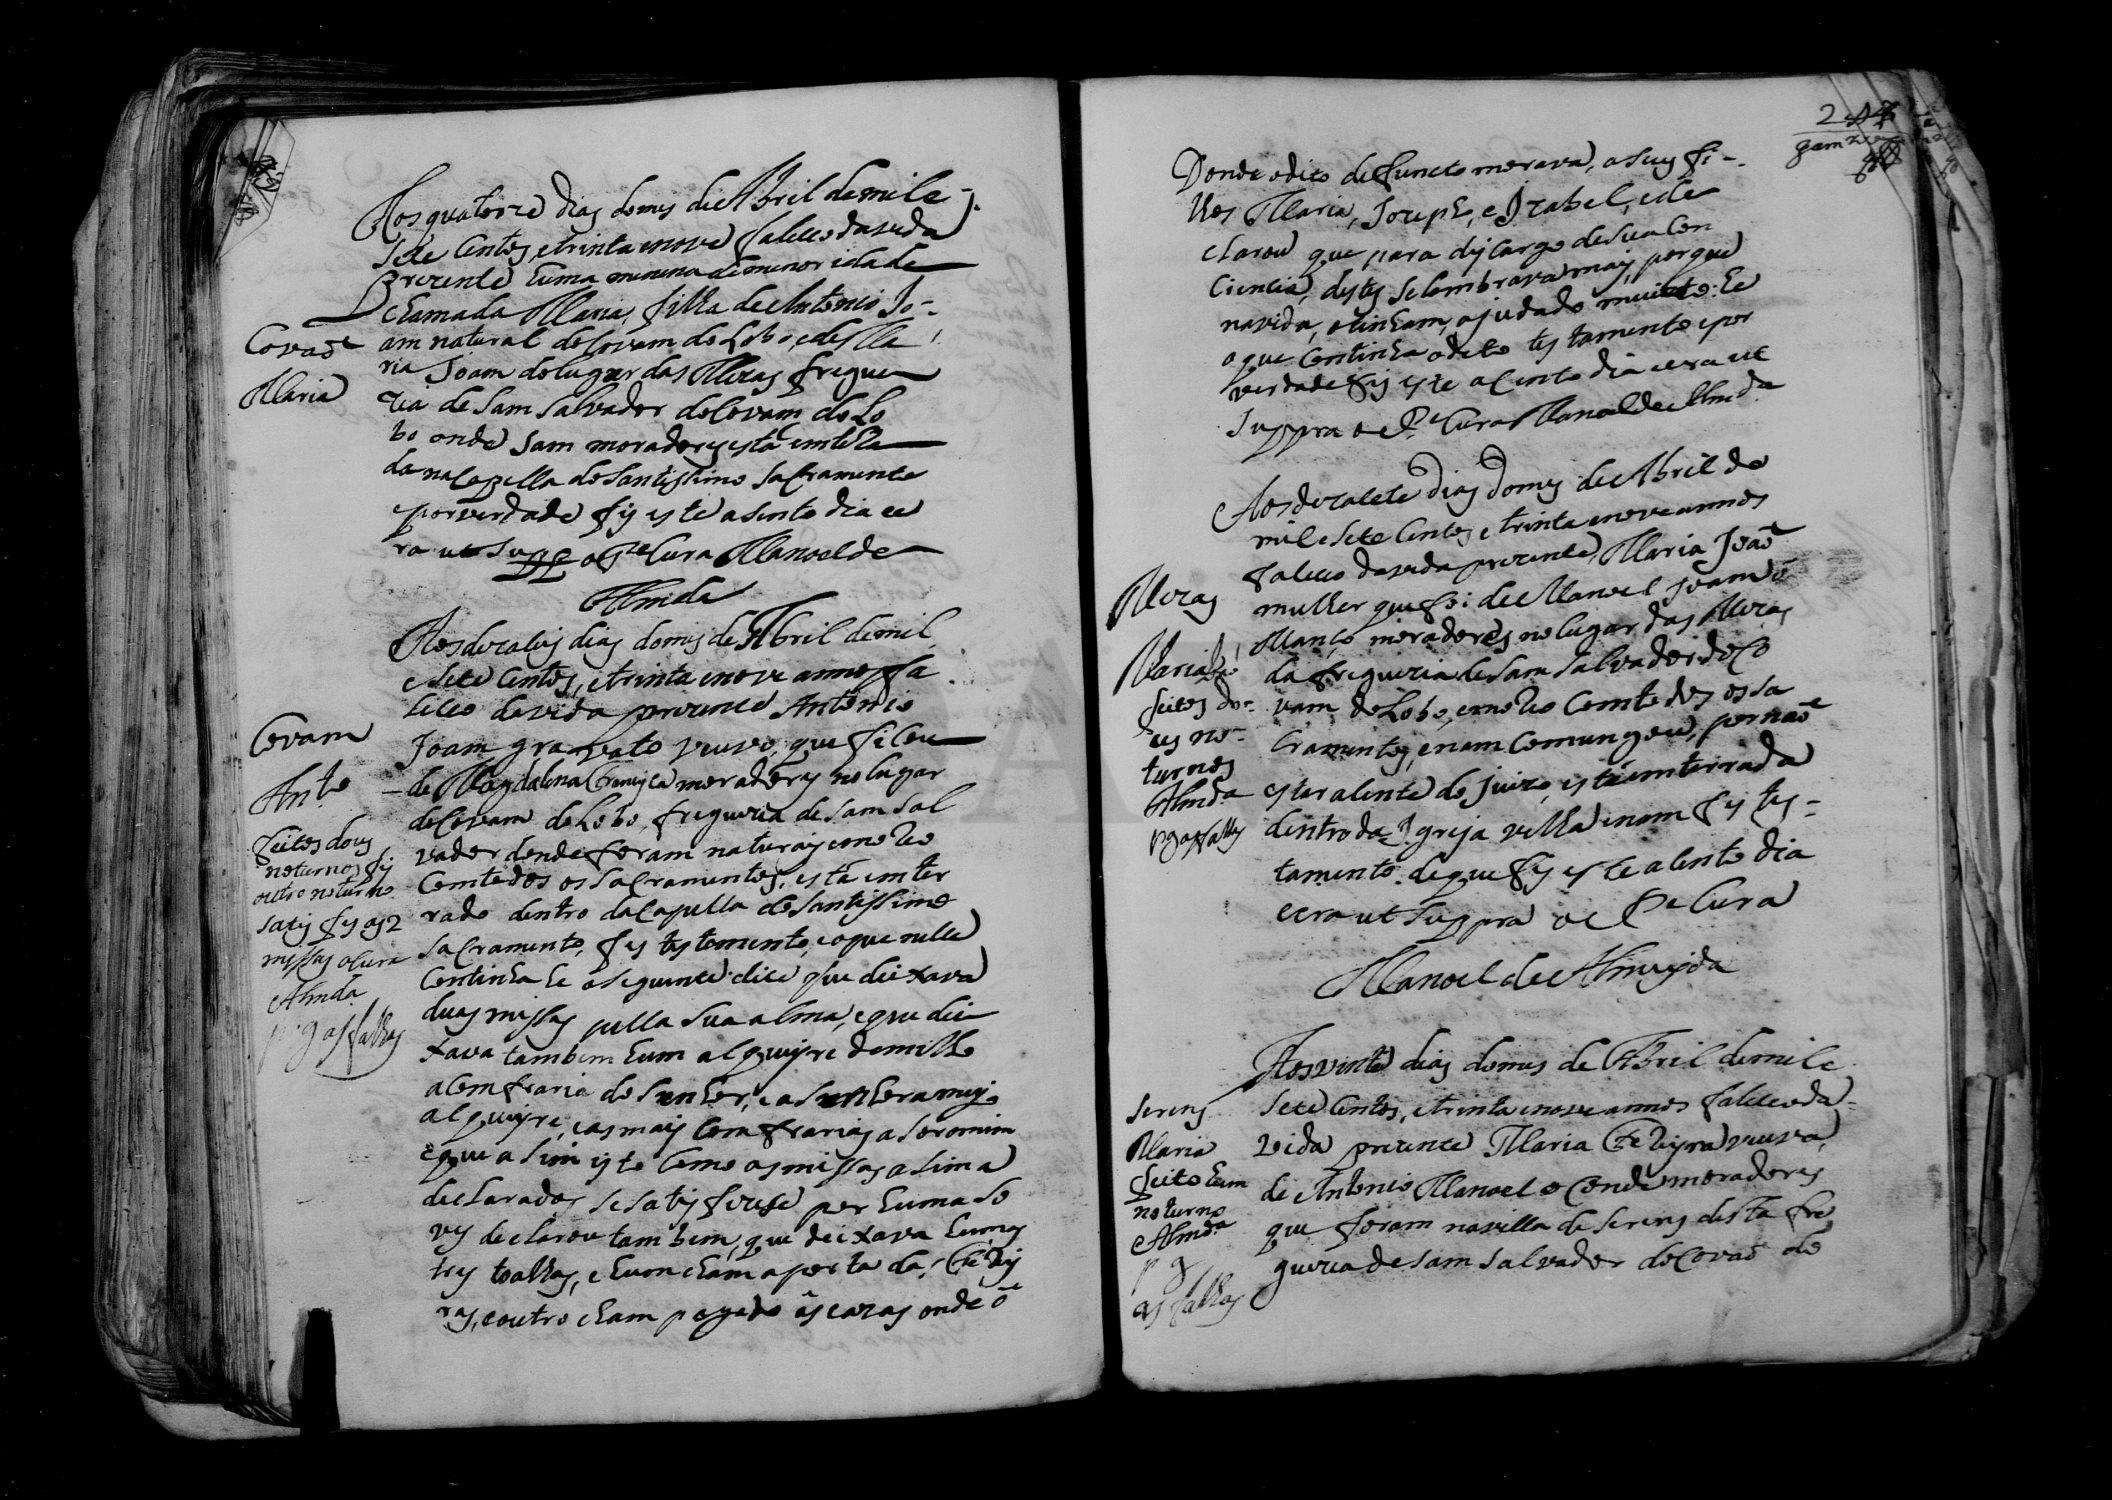 Aos quatorze dias do mes de Abril de mil e
Sete Centos, e trinta e nove faleceo da vida
Prezente huma menina de menor idade
chamada Maria, filha de Antonio Jo-
am natural do Covam do Lobo, e de Ma
ria Joam do lugar das Mezas fregue
zia de Sam Salvador do Covam do Lo
bo onde sam moradores está enterra
da na Capella do Santissimo Sacramento
e por verdade fis este asento dia e e
ra ut supra o Pe Cura Manoel de
Almda
Covaõ
Maria
Aos dezaseis dias do mes de Abril de mil
e Sete Centos, e trinta e nove annos fa
leceo da vida prezente Antonio
Joam gravato viuvo, que ficou
de Magdalena Francisca moradores no lugar
do Covam do Lobo, freguezia de Sam Sal
vador donde foram naturais
Com todos os sacramentos, está enter
rado dentro da Capella do Santissimo
Sacramento, fes testamento, e o que nelle
Continha he o seguinte dice que deixava
duas missas pella sua alma, e que dei
xava tambem hum alqueyre de milho
a Comfraria do Senhor, e a Senhora meyo
alqueyre, e as mais Comfrarias
e que asim isto Como as missas asima
declaradas se satisfizese por huma so
ves declarou tambem, que deixava humas
tres toalhas, e hum cham a porta da
e outro cham pegado ás cazas onde o
Covam
Anto
feitos dous
noturnos fis
outro noturno
satis fis as 2
missas o Cura
Almda
Donde o dito defuncto morava, a seus fi-
lhos Maria, Joseph, e Izabel, e de
clarou que para discargo de sua Con
Ciencia, destes se lembrava mais porque
na vida, o tinham, ajudado muito: he
o que Continha o dito testamento e por
verdade fis este asento dia e era ut
Suppra o Pe Cura Manoel de Almda
Aos dezasete dias do mes de Abril de
mil e Sete Centos, e trinta e nove annos
faleceo da vida prezente, Maria Joaõ
mulher que foi de Manoel Joam o
Manço moradores no lugar das Mezas
da freguezia de Sam Salvador do Co
vam do Lobo, Com todos os sa
cramentos, e nam Comungou, por naõ
estar alente do juizo, está enterrada
dentro da Igreja velha e nam fes tes-
tamento. de que fis este asento dia
e era ut suppra o Pe Cura
Manoel de Almeyda
Mezas
Maria
feitos do-
us no-
turnos
Almda
Aos vinte dias do mes de Abril de mil e
Sete Centos, e trinta e nove annos faleceo da
vida prezente Maria viuva
de Antonio Manoel o Conde moradores
que foram na villa de Serens desta fre
guezia de Sam Salvador do Covaõ do
Serens
Maria
feito hum
noturno
Almda